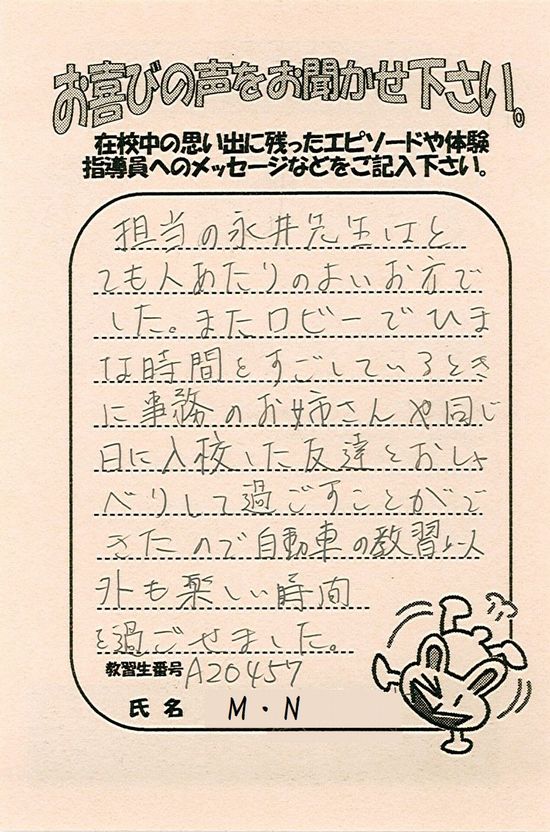 お喜びの声をお聞かせ下さい。
在校中の思い出に残ったエピソードや体験
指導員へのメッセージなどをご記入下さい。
担当の永井先生はと
ても人あたりのよいお方で
した。またロビーでひま
な時間をすごしているとき
に事務のお姉さんや同じ
日に入校した友達とおしゃ
べりして過ごすことがで
きたので自動車の教習以
外も楽しい時間
を過ごせました。
教習生番号 A20457
氏名 M・N